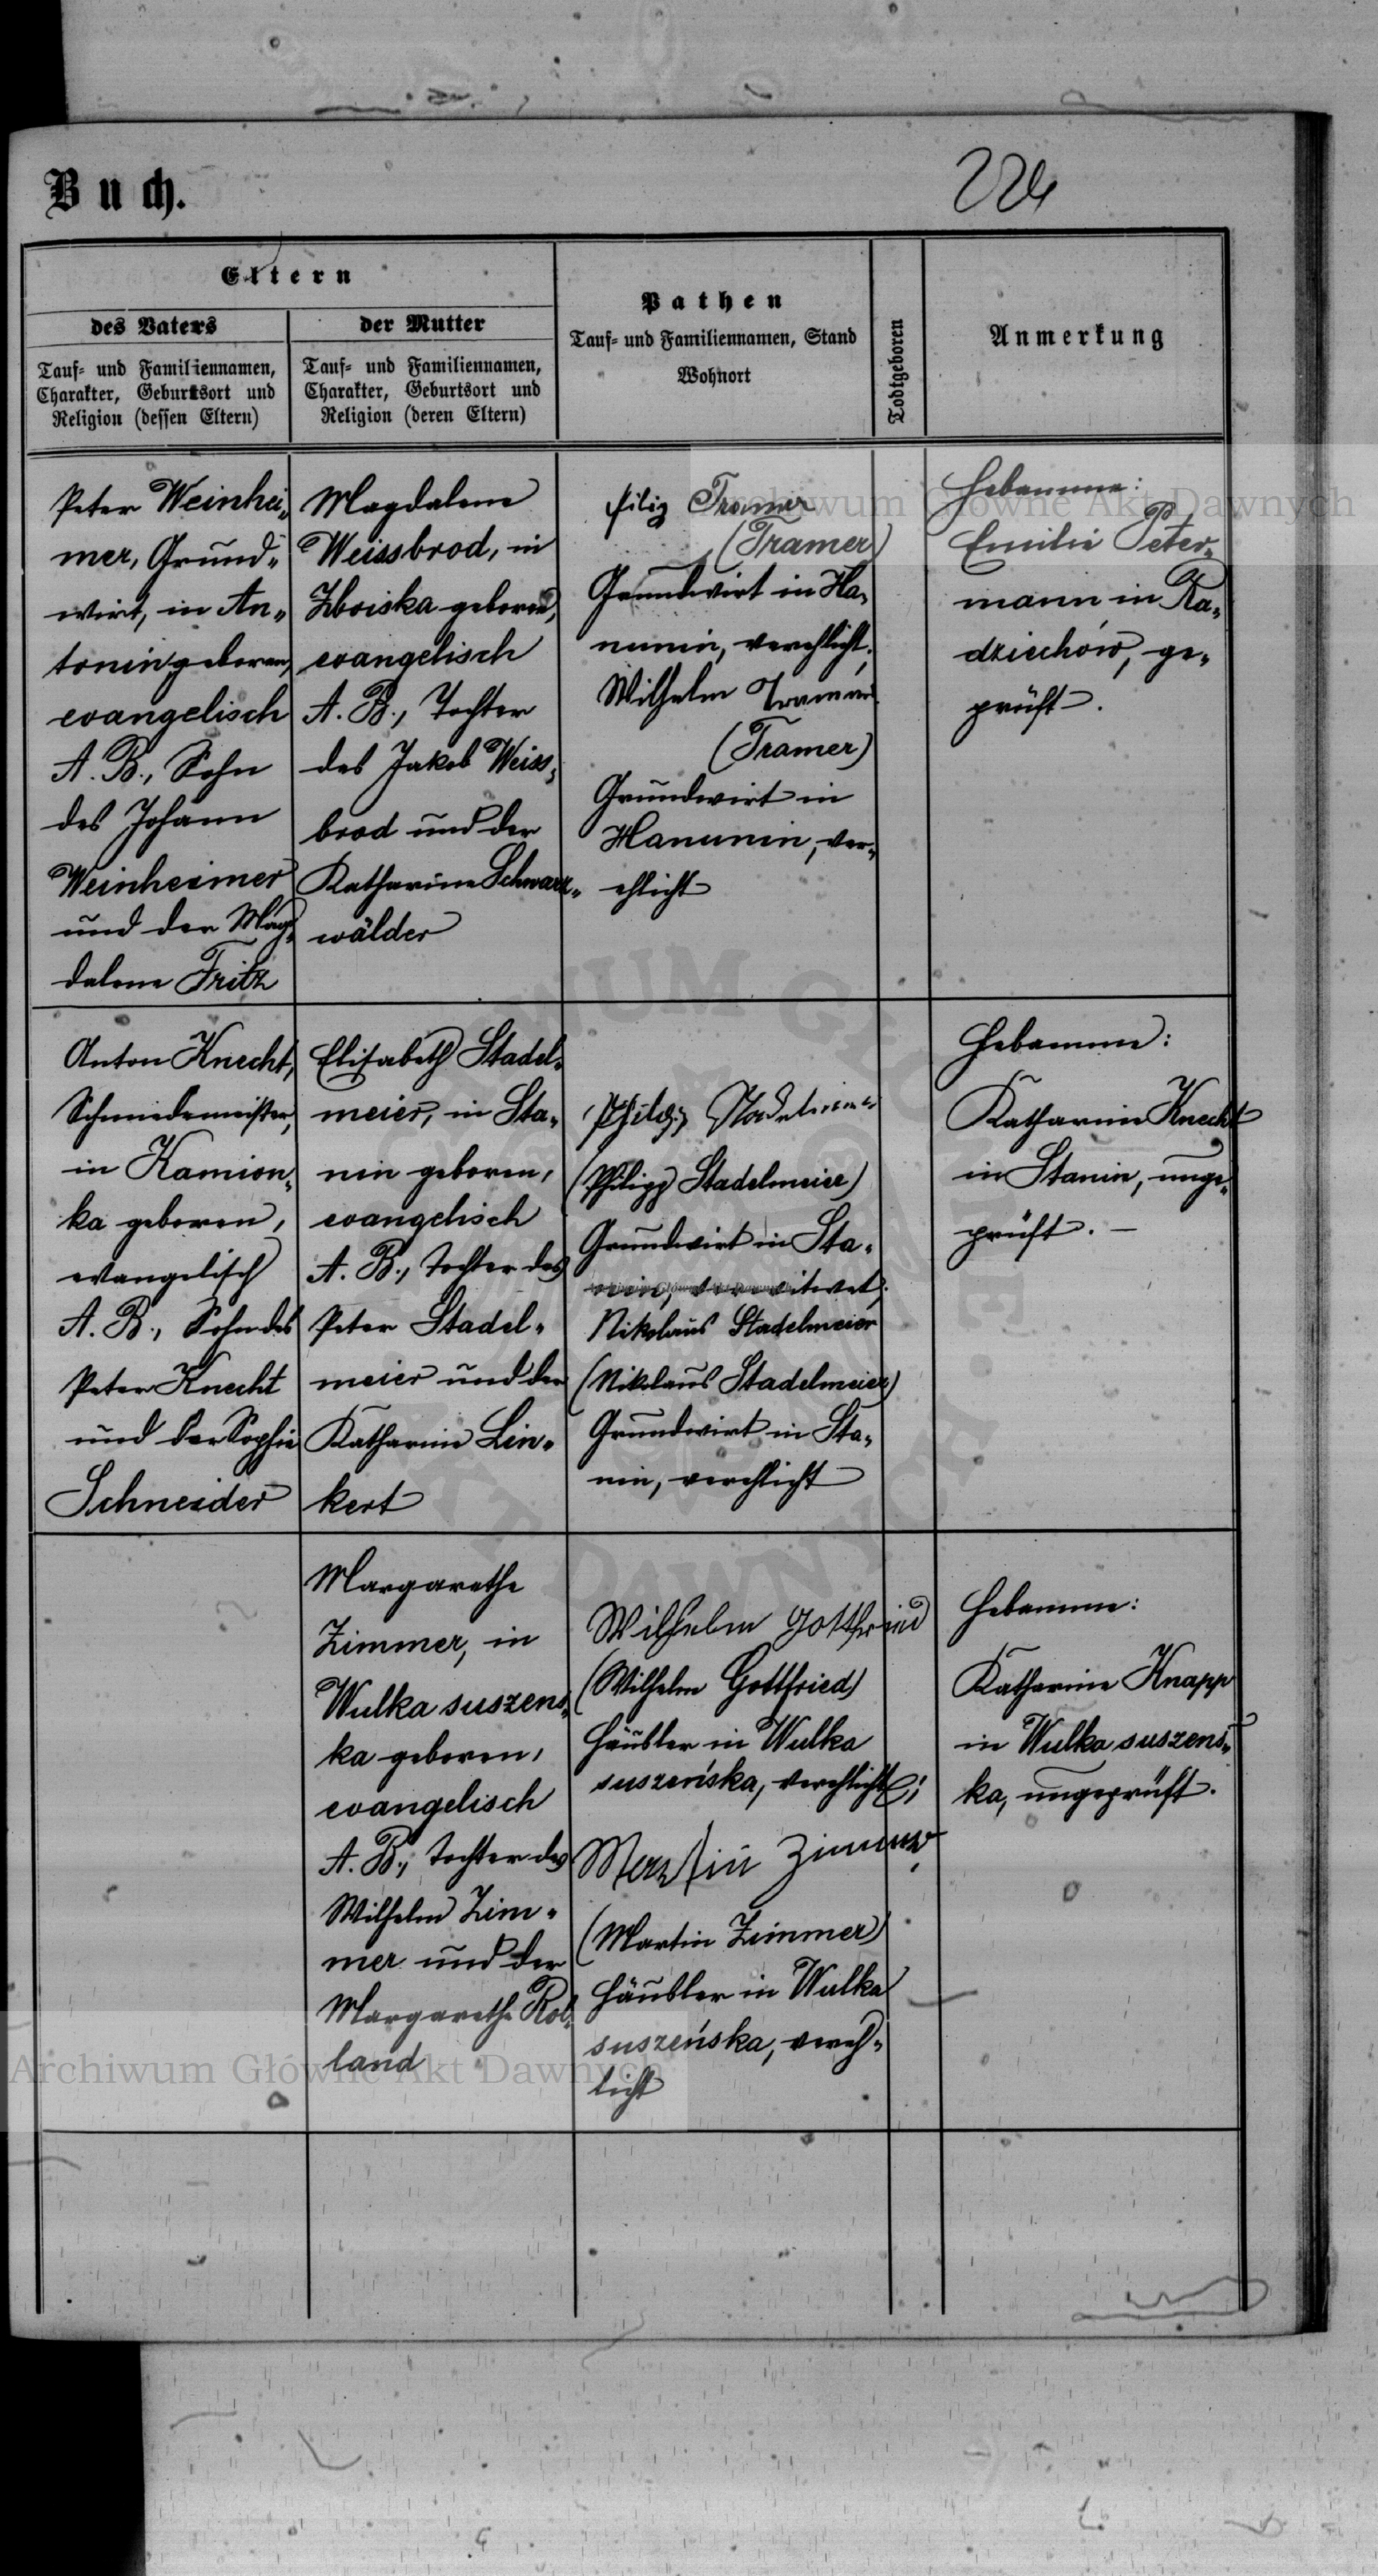 Buch.
224
Eltern
des Vaters
Tauf- und Familiennamen,
Charakter, Geburtsort und
Religion (dessen Eltern)
der Mutter
Tauf- und Familiennamen,
Charakter, Geburtsort und
Religion (deren Eltern)
Pathen
Tauf- und Familiennamen, Stand
Wohnort
Todtgeboren
Anmerkung
Peter Weinhei-
mer, Grund-
wirt, in An-
tonin geboren,
evangelisch
A. B., Sohn
des Johann
Weinheimer
und der Mag-
dalena Fritz
Magdalena
Weissbrod, in
Zboiska geboren,
evangelisch
A. B., Tochter
des Jakob Weiss-
brod und der
Katharina Schwarz-
wälder
filip Tramer
(Tramer)
Grundwirt in Ha-
nunin, verehlicht;
Wilhelm Tramer
(Tramer)
Grundwirt in
Hanunin, ver-
ehlicht
Hebamme:
Emilie Peter-
mann in Ra-
dziechów, ge-
prüft.
Anton Knecht,
Schmiedemeister,
in Kamion-
ka geboren,
evangelisch
A. B., Sohn des
Peter Knecht
und der Sophie
Schneider
Elisabeth Stadel-
meier, in Sta-
nin geboren,
evangelisch
A. B., Tochter des
Peter Stadel-
meier und der
Katharina Lin-
kert
(Philipp Stadelmeier)
Grundwirt in Sta-
nin, verwitwet;
Nikolaus Stadelmeier
(Nikolaus Stadelmeier)
Grundwirt in Sta-
nin, verehlicht
Hebamme:
Katharina Knecht
in Stanin, unge-
prüft. –
Margarethe
Zimmer, in
Wulka suszens-
ka geboren,
evangelisch
A. B., Tochter des
Wilhelm Zim-
mer und der
Margarethe Rol-
land
Wilhelm Gottfried
(Wilhelm Gottfried)
Häusler in Wulka
suszeńska, verehlicht;
Martin Zimmer
(Martin Zimmer)
Häusler in Wulka
suszeńska, vereh-
licht
Hebamme:
Katharina Knapp
in Wulka suszeńs-
ka, ungeprüft.
Archiwum Główne Akt Dawnych
Archiwum Główne Akt Dawnych